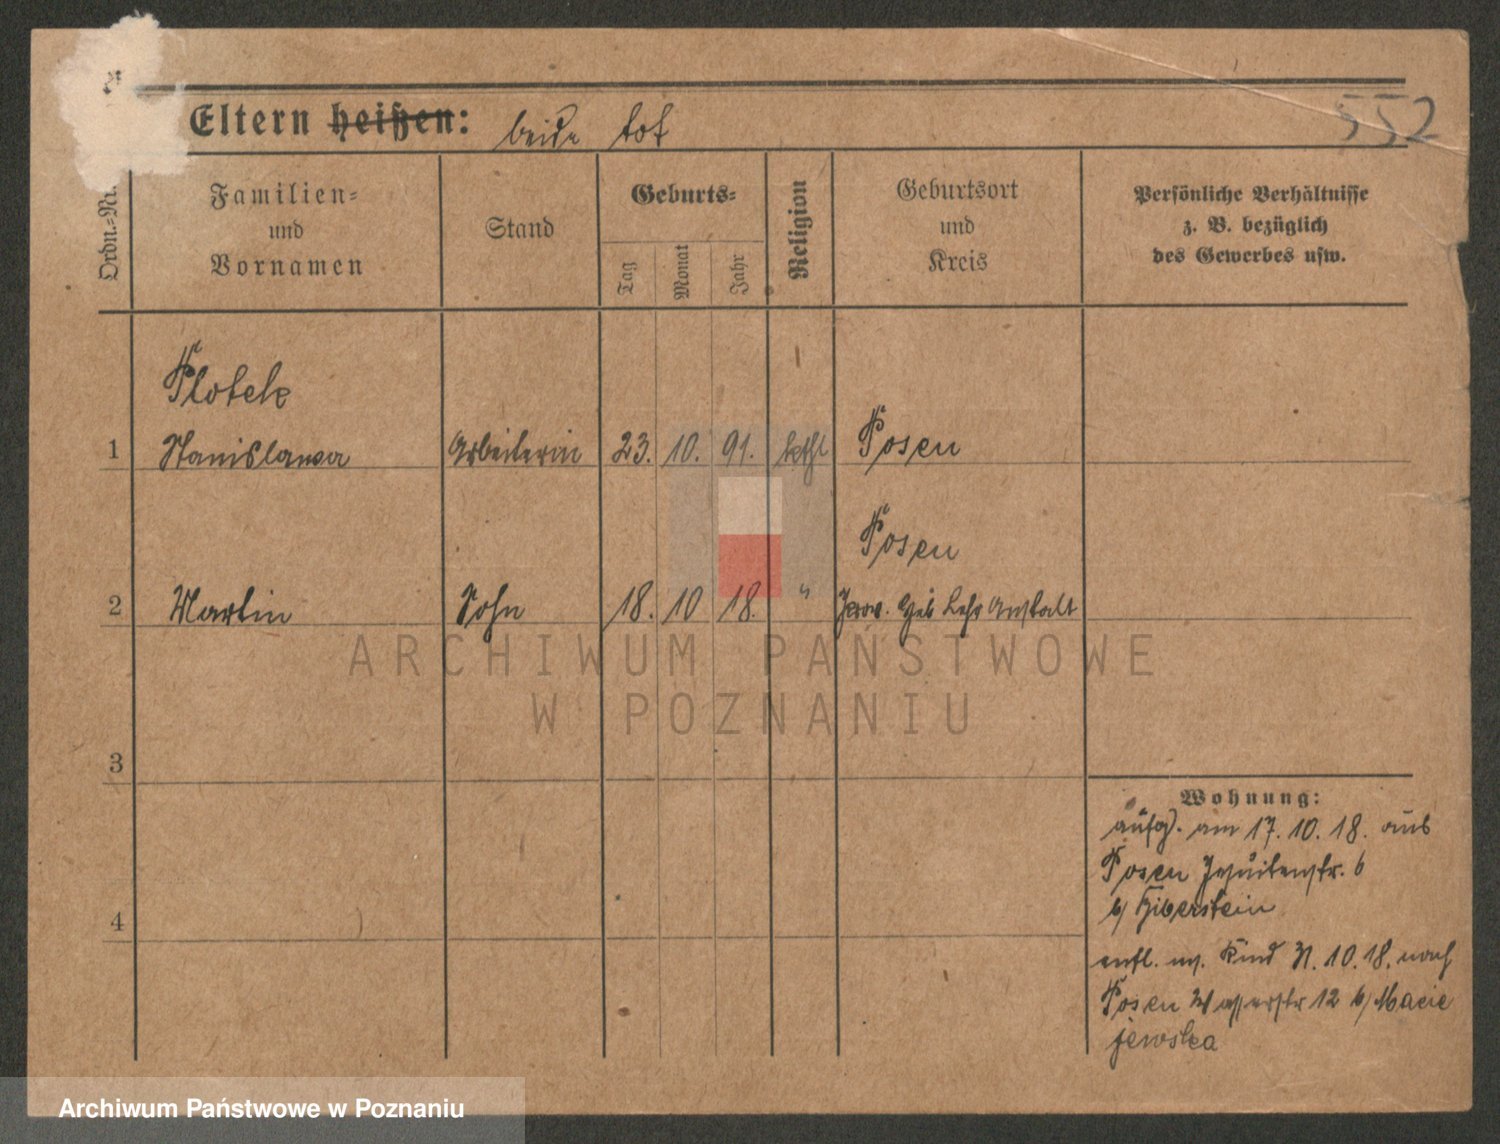 552
Eltern heißen: beide tot
Ordn.-Nr.
Familien-
und
Vornamen
Stand
Geburts-
Tag
Monat
Jahr
Religion
Geburtsort
und
Kreis
Persönliche Verhältnisse
z. B. bezüglich
des Gewerbes usw.
Plotek
1 Stanislawa Arbeiterin 23. 10. 91. kathl Posen
Posen
2 Martin Sohn 18. 10 18. " Prov. Geb Lehr Anstalt
3
4
Wohnung:
aufg. am 17. 10. 18. aus
Posen Jesuitenstr. 6
b/ Biberstein
entl. m. Kind 31. 10. 18. nach
Posen Wasserstr 12 b/ Macie
jewska
ARCHIWUM PAŃSTWOWE
W POZNANIU
Archiwum Państwowe w Poznaniu